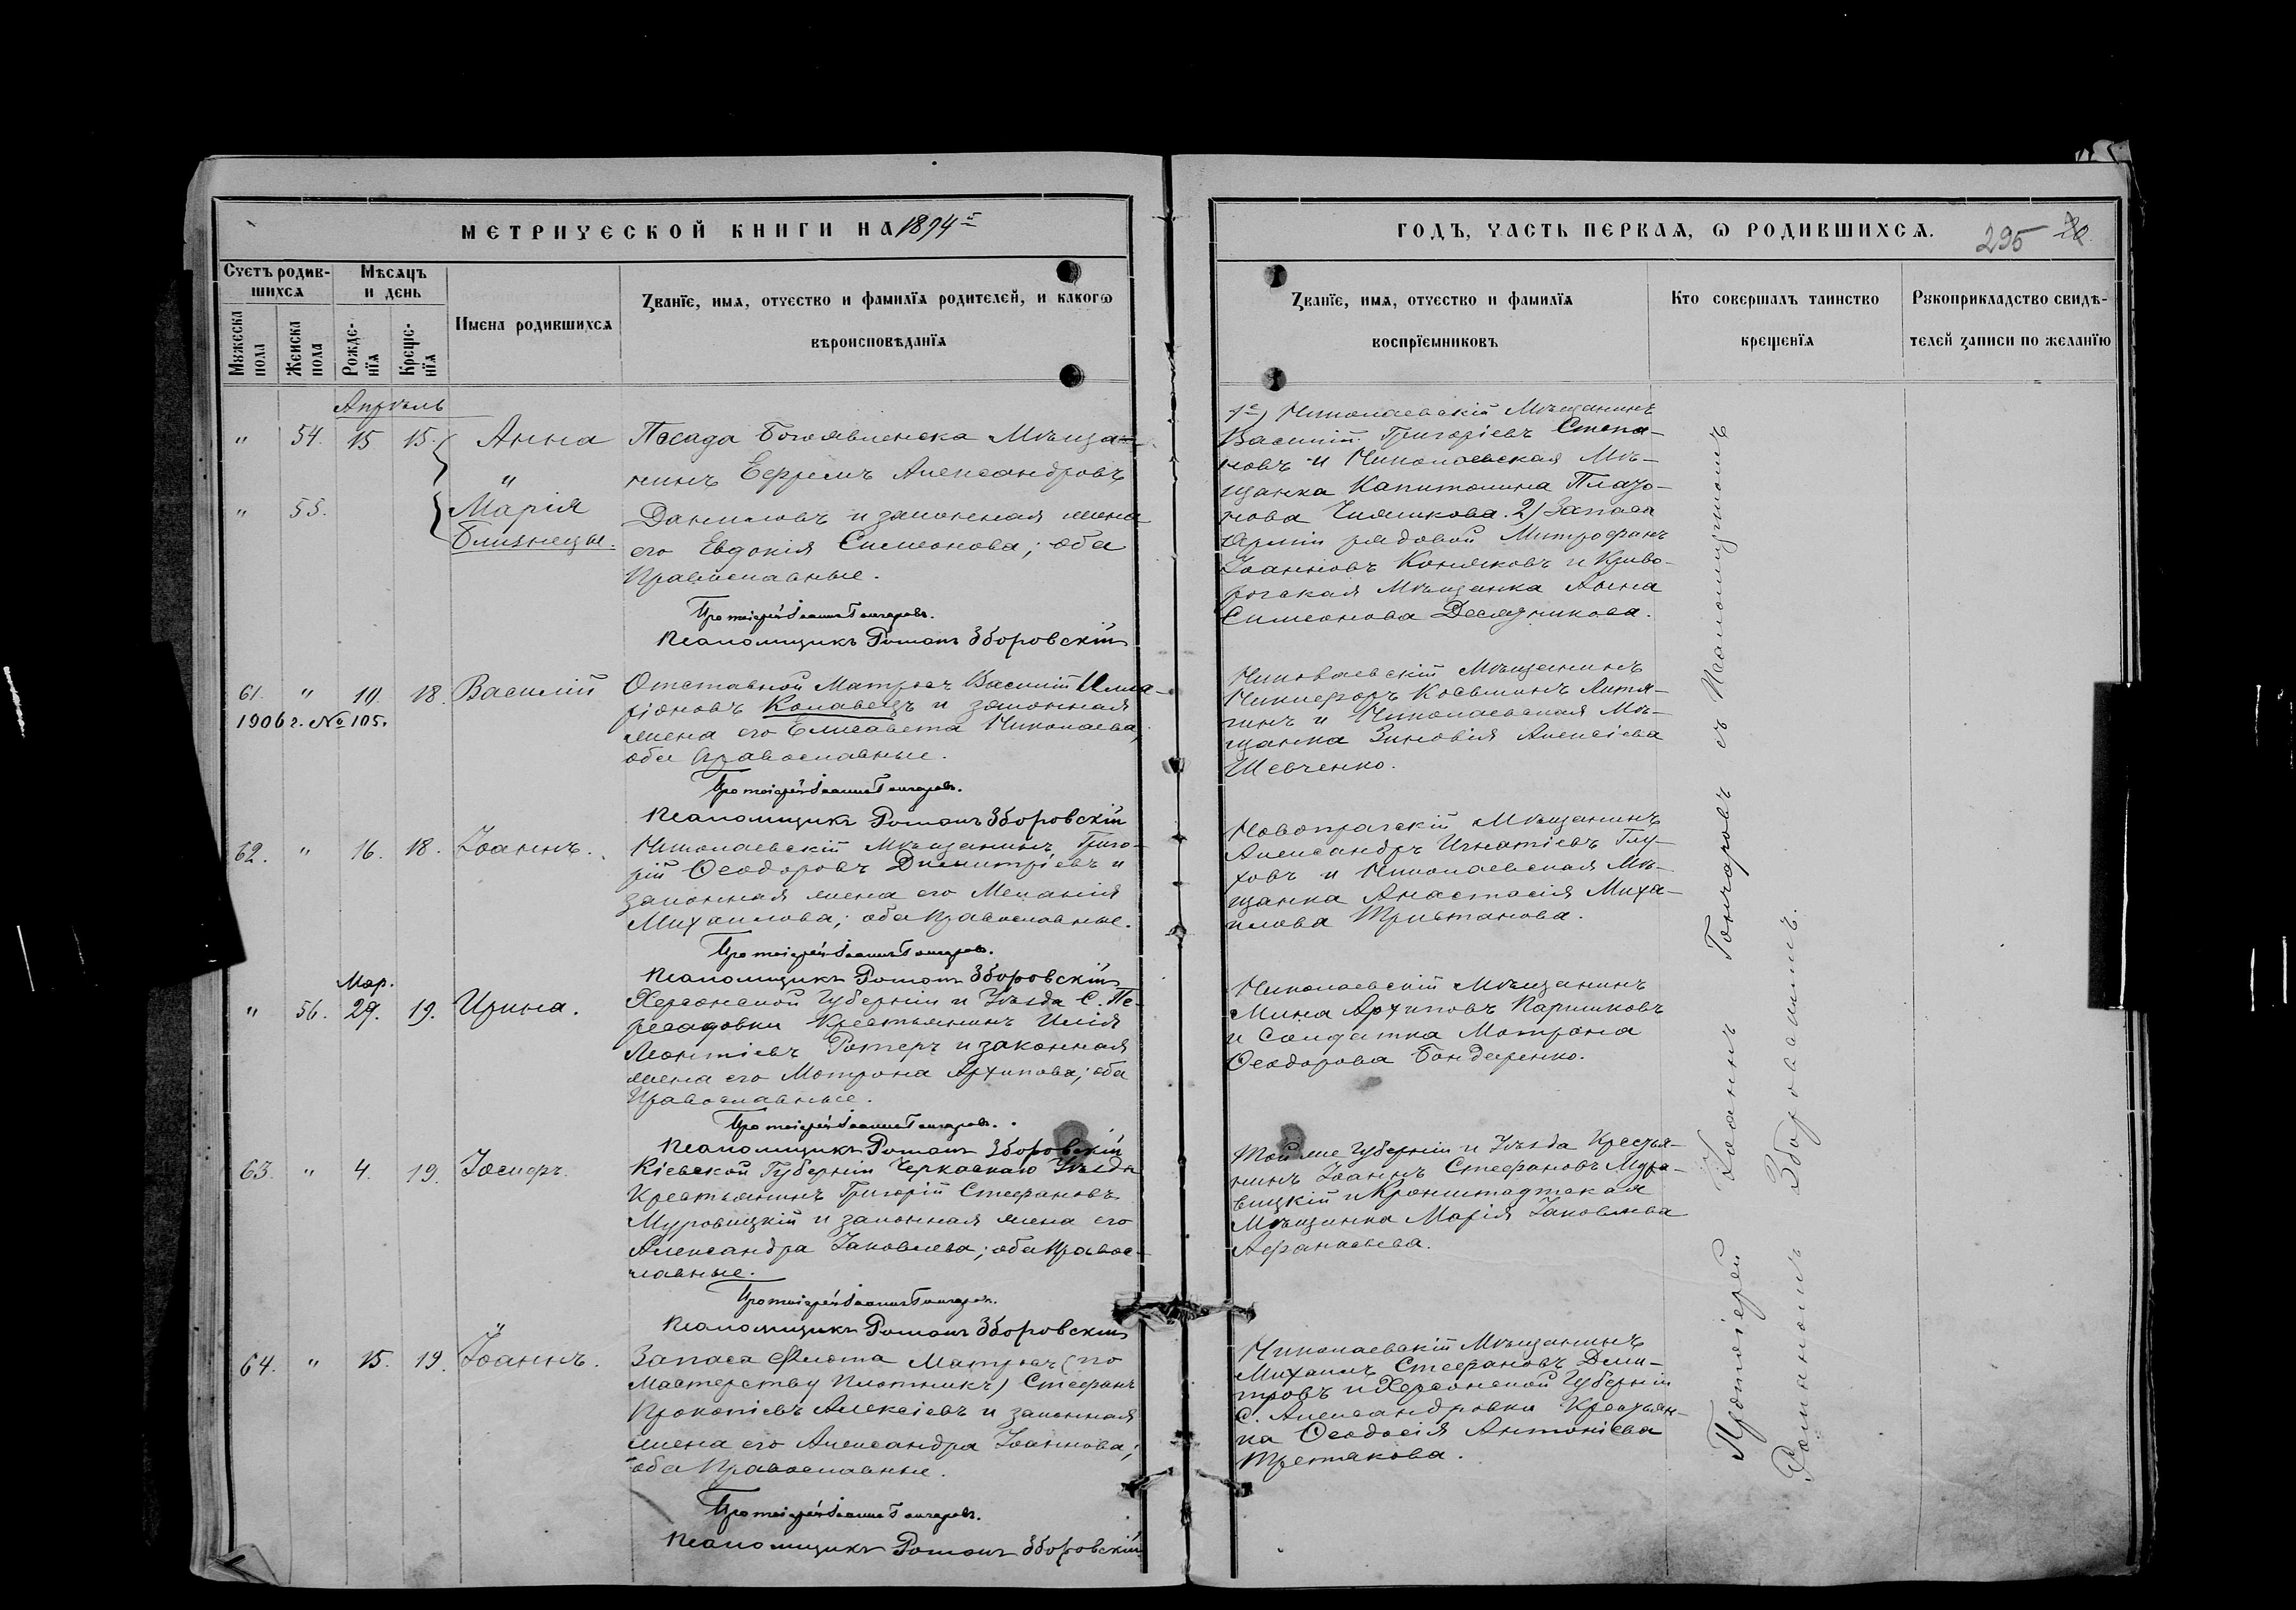 МЕТРИЧЕСКОЙ КНИГИ НА 1894й
ГОДЪ, ЧАСТЬ ПЕРВАЯ, Ѡ РОДИВШИХСЯ.
295
Счетъ родив-
шихся
Мѣсяцъ
и день
Мꙋжеска
пола
Женска
пола
Рожде-
нїя
Креще-
нїя
Имена родившихся
Званїе, имя, отчество и фамилїя родителей, и какогѡ
вѣроисповѣданїя
Званїе, имя, отчество и фамилїя
воспрїемниковъ
Кто совершалъ таинство
крещенїя
Рꙋкоприкладство свидѣ-
телей записи по желанїю
Апрѣль
" 54. 15 15. Анна
"
" 55. Марія
Близнецы.
Посада Богоявленска Мѣща-
нинъ Ефремъ Александровъ
Даниловъ и законная жена
его Евдокія Симеонова; оба
Православные.
Протоіерей Іоаннъ Гончаровъ.
Псаломщикъ Романъ Зборовскій
1е) Николаевскій Мѣщанинъ
Василій Григоріевъ Степа-
новъ и Николаевская Мѣ-
щанка Капитолина Плато-
нова 2) Запаса
Арміи рядовой Митрофанъ
Іоанновъ Коняковъ и Криво-
рогская Мѣщанка Анна
Симеонова Десятникова.
61. " 10. 18. Василій
1906 г. № 105.
Отставной Матросъ Василій Илла-
ріоновъ Колавецъ и законная
жена его Елисавета Николаева,
оба Православные.
Протоіерей Іоаннъ Гончаровъ.
Псаломщикъ Романъ Зборовскій
Николаевскій Мѣщанинъ
Никифоръ Косьминъ Литя-
гинъ и Николаевская Мѣ-
щанка Зиновія Алексіева
Шевченко.
62. " 16. 18. Іоаннъ.
Николаевскій Мѣщанинъ Григо-
рій Ѳеодоровъ Димитріевъ и
законная жена его Меланія
Михаилова; оба Православные.
Протоіерей Іоаннъ Гончаровъ.
Псаломщикъ Романъ Зборовскій
Новопрагскій Мѣщанинъ
Александръ Игнатіевъ Глу-
ховъ и Николаевская Мѣ-
щанка Анастасія Миха-
илова Триштанова.
Мар.
" 56. 29. 19. Ирина.
Херсонской Губерніи и Уѣзда С. Пе-
ресадовки Крестьянинъ Илія
Леонтіевъ Ротеръ и законная
жена его Матрона Архипова; оба
Православные.
Протоіерей Іоаннъ Гончаровъ.
Псаломщикъ Романъ Зборовскій
Николаевскій Мѣщанинъ
Мина Архиповъ Паршиковъ
и Солдатка Матрона
Ѳеодорова Бондаренко.
63. " 4. 19. Іосифъ.
Кіевской Губерніи Черкаскаго Уѣзда
Крестьянинъ Григорій Стефановъ
Муровицкій и законная жена его
Александра Іаковлева; оба Правос-
лавные.
Протоіерей Іоаннъ Гончаровъ.
Псаломщикъ Романъ Зборовскій
Той же Губерніи и Уѣзда Крестья-
нинъ Іоаннъ Стефановъ Муро-
вицкій и Кронштадтская
Мѣщанка Марія Іаковлева
Афанасьева.
64. " 15. 19. Іоаннъ.
Запаса Флота Матросъ (по
мастерству плотникъ) Стефанъ
Прокопіевъ Алексіевъ и законная
жена его Александра Іоаннова;
оба Православные.
Протоіерей Іоаннъ Гончаровъ.
Псаломщикъ Романъ Зборовскій
Николаевскій Мѣщанинъ
Михаилъ Стефановъ Дми-
тровъ и Херсонской Губерніи
С. Александровки Крестьян-
ка Ѳеодосія Антоніева
Третякова.
Протоіерей Іоаннъ Гончаровъ съ Псаломщикомъ
Романомъ Зборовскимъ.